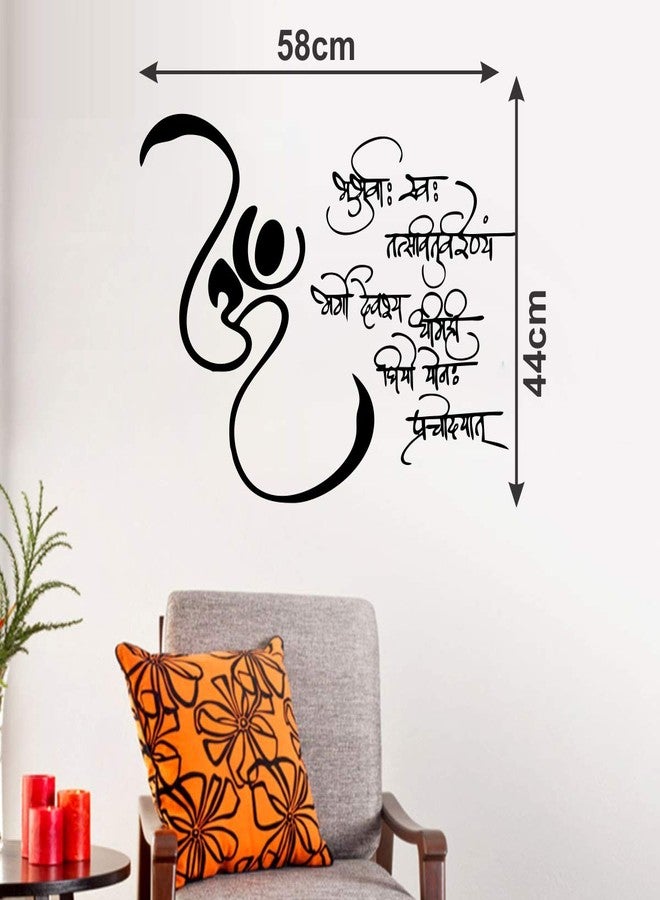 58cm
भुर्भुवाः स्वः
तत्सवितुर्वरेण्यं
भर्गो देवस्य
धीमही
धियो योनः
प्रचोदयात्
44cm